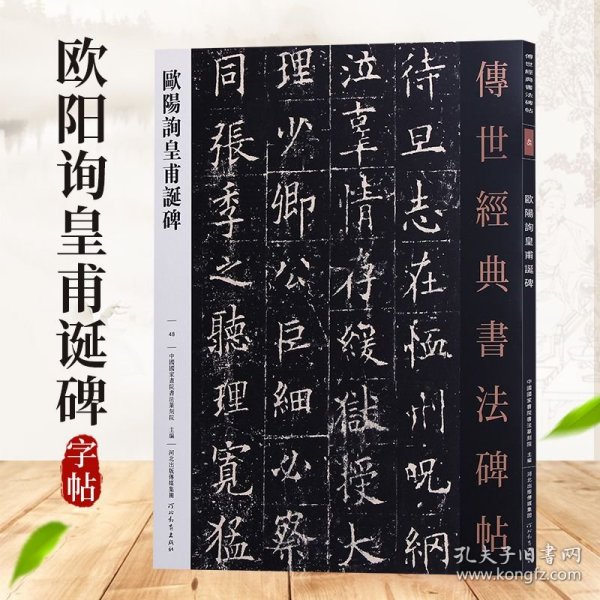 欧阳询皇甫诞碑
字帖
歐陽詢皇甫誕碑
48
中國國家畫院書法篆刻院 主編
河北出版傳媒集團
河北教育出版社
待旦志在恤刑呪網
泣辜情存緩獄授大
理少卿公巨細必察
同張季之聽理寬猛
傳世經典書法碑帖
傳世經典書法碑帖
歐陽詢皇甫誕碑
中國國家畫院書法篆刻院 主編
河北出版傳媒集團
孔夫子旧书网
www.kongfz.com